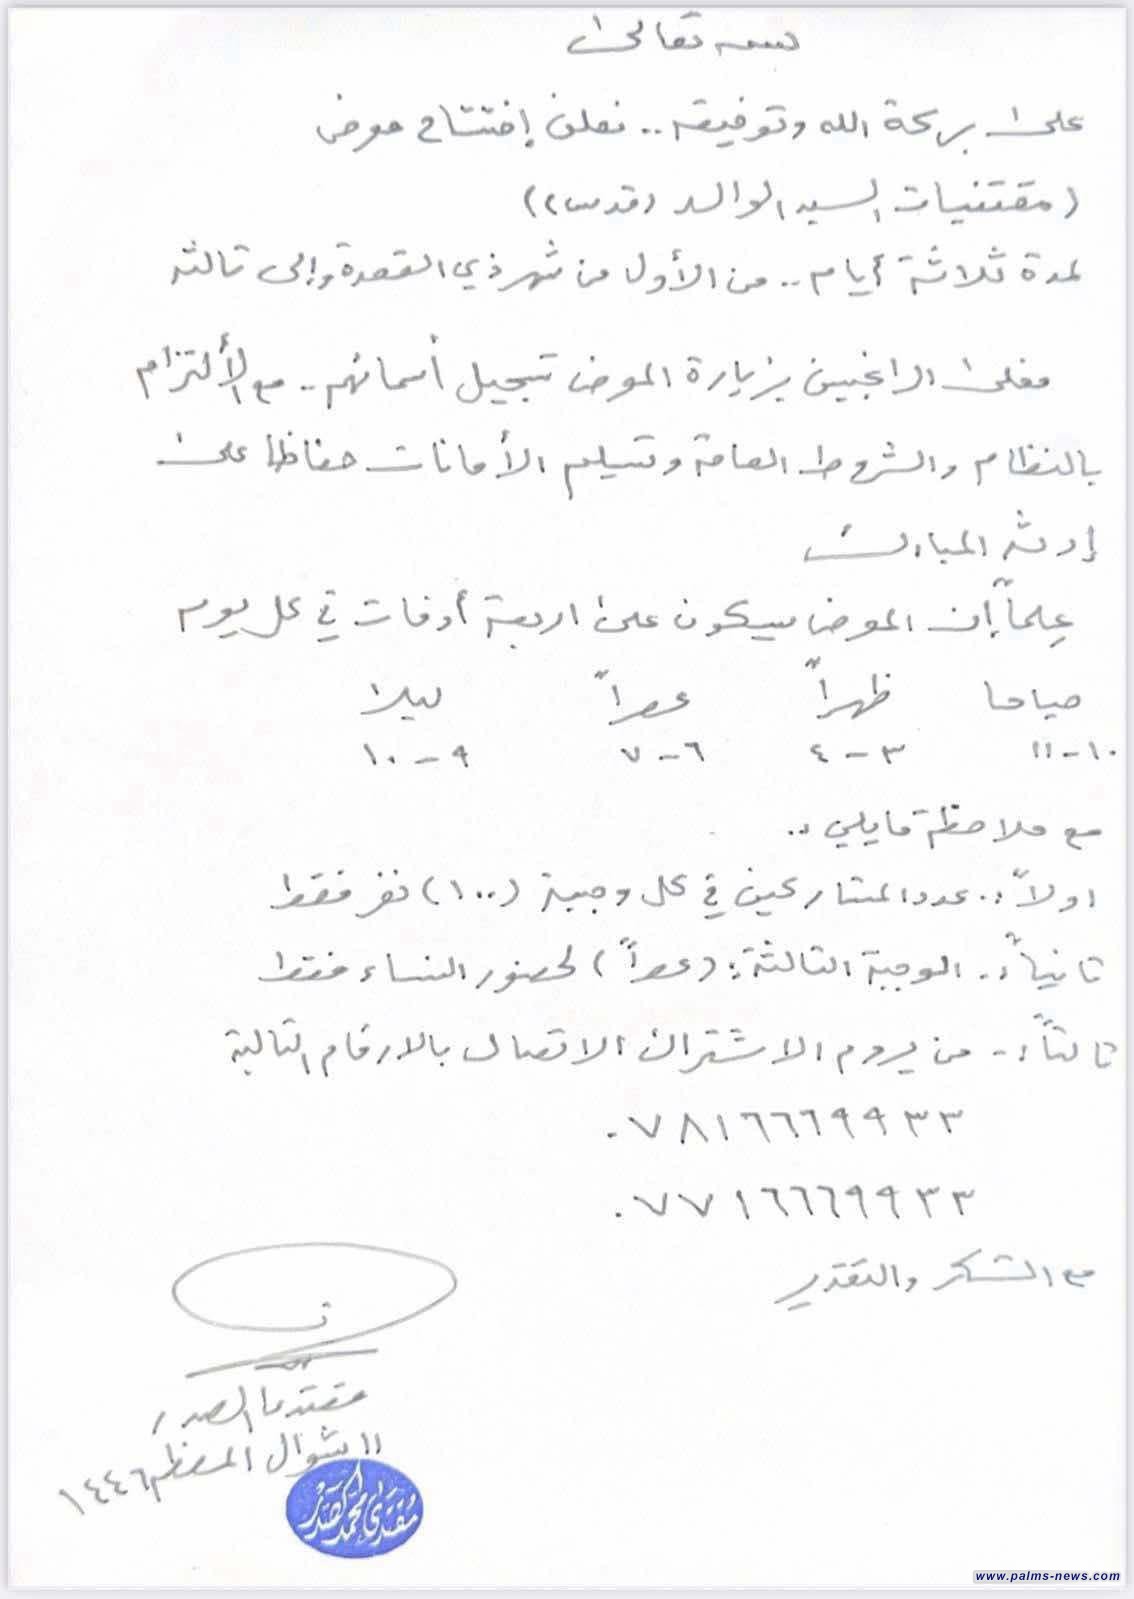 بسمه تعالى
على بركة الله وتوفيقه .. نعلن إفتتاح معرض
(مقتنيات السيد الوالد (قدس))
لمدة ثلاثة أيام .. من الأول من شهر ذي القعدة وإلى ثالثه
فعلى الراغبين بزيارة المعرض تسجيل أسمائهم .. مع الألتزام
بالنظام والشروط العامة وتسليم الأمانات حفاظا على
إرثه المبارك
علماً إن المعرض سيكون على اربعة أوقات في كل يوم
صباحا ظهراً عصراً ليلا
١٠-١١ ٣-٤ ٦-٧ ٩-١٠
مع ملاحظة مايلي :.
اولاً :. عدد المشاركين في كل وجبة (١٠٠) نفر فقط
ثانياً :. الوجبة الثالثة : (عصراً) لحضور النساء فقط
ثالثاً :- من يروم الاشتراك الاتصال بالارقام التالية
٠٧٨١٦٦٦٩٩٣٣
٠٧٧١٦٦٦٩٩٣٣
مع الشكر والتقدير
مقتدى الصدر
١١ شوال المعظم ١٤٤٦
مقتدى محمد الصدر
www.palms-news.com